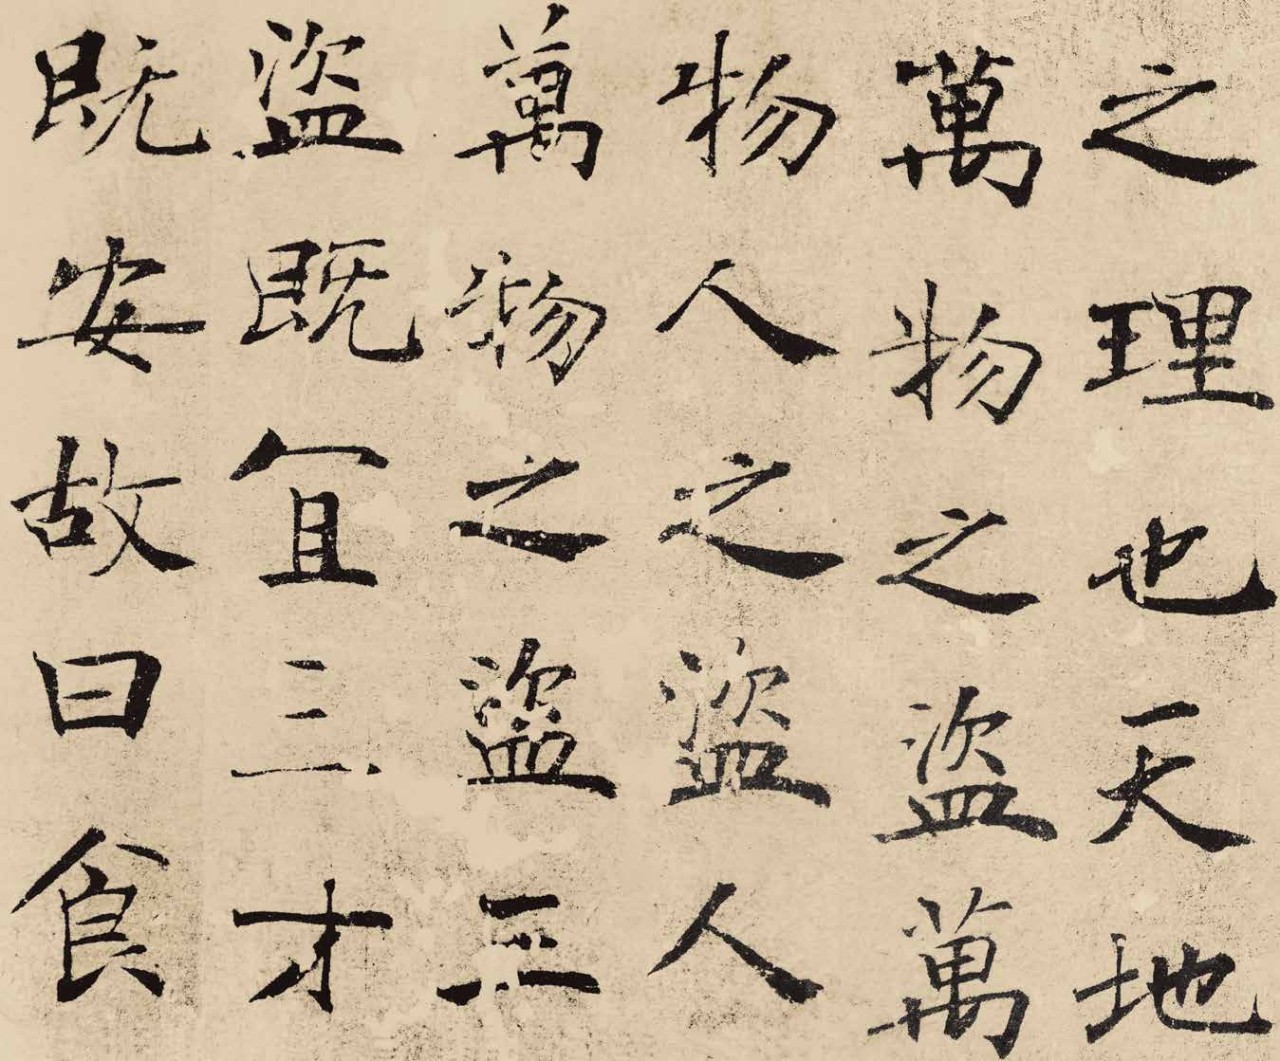 之理也天地
萬物之盜萬
物人之盜人
萬物之盜三
盜既宜三才
既安故曰食